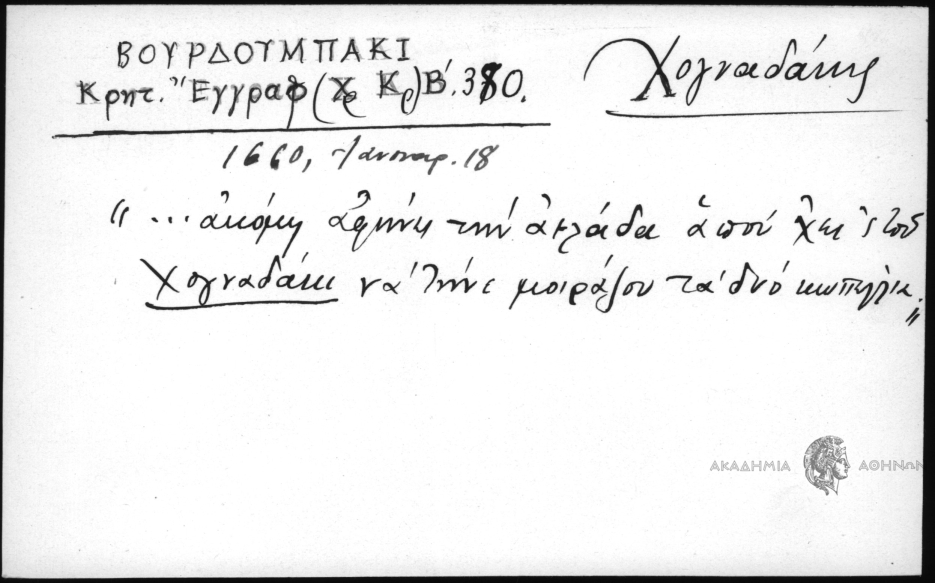 ΒΟΥΡΔΟΥΜΠΑΚΙ
Κρητ. Ἔγγραφ (Χρ Κρ) Β΄. 380.
Χογναδάκης
1660, Ἰανουαρ. 18
"... ἀκόμη ἀφήνει τὴν ἀχλάδα ἁποὺ 'χει 'ς τοῦ
Χογναδάκι νὰ τήνε μοιράζου τὰ δυό κοπέλλια."
ΑΚΑΔΗΜΙΑ ΑΘΗΝΩΝ